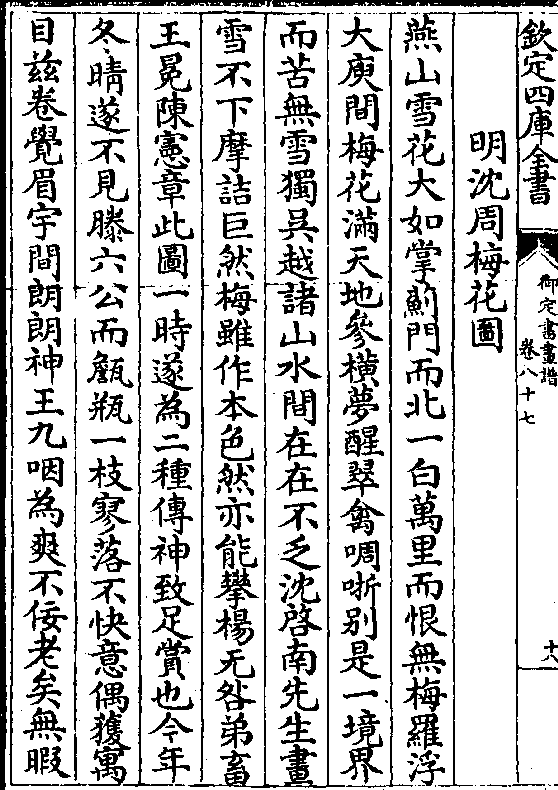 欽定四庫全書
御定書畫譜
卷八十七
十八
明沈周梅花圖
燕山雪花大如掌薊門而北一白萬里而恨無梅羅浮
大庾間梅花滿天地參橫夢醒翠禽啁哳别是一境界
而苦無雪獨吳越諸山水間在在不乏沈啓南先生畫
雪不下摩詰巨然梅雖作本色然亦能攀楊无咎弟畜
王冕陳憲章此圖一時遂為二種傳神致足賞也今年
冬晴遂不見滕六公而甆瓶一枝寥落不快意偶獲寓
目兹卷覺眉宇間朗朗神王九咽為爽不佞老矣無暇